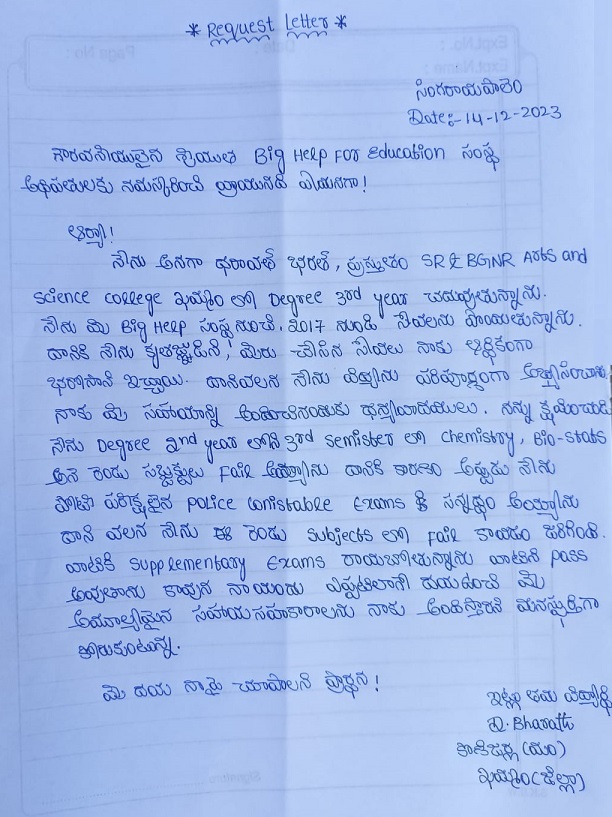 * Request Letter *
సింగరాయపాలెం
Date:- 14-12-2023
గౌరవనీయులైన శ్రీయుత Big Help For Education సంస్థ
అధిపతులకు నమస్కరించి వ్రాయునది ఏమనగా!
ఆర్యా!
నేను అనగా భరత్, ప్రస్తుతం SR & BGNR Arts and
science college ఖమ్మం లో Degree 3rd year చదువుతున్నాను.
నేను మీ Big Help సంస్థ నుంచి, 2017 నుండి సేవలను పొందుతున్నాను.
దానికి నేను కృతజ్ఞుడిని, మీరు చేసిన సేవలు నాకు ఆర్థికంగా
భరోసాని ఇచ్చాయి. దానివలన నేను విద్యను పరిపూర్ణంగా
నాకు మీ సహాయాన్ని అందించినందుకు ధన్యవాదములు. నన్ను క్షమించండి
నేను Degree 2nd year లోని 3rd semister లో chemistry, Bio-stats
అనే రెండు సబ్జెక్టులు Fail అయ్యాను దానికి కారణం అప్పుడు నేను
పోటి పరీక్షలైన police constable Exams కి సన్నద్ధం అయ్యాను
దాని వలన నేను ఈ రెండు subjects లో Fail కావడం జరిగింది.
వాటికి supplementary Exams రాయబోతున్నాను వాటిని pass
అవుతాను కావున నా యందు ఎప్పటిలానే దయఉంచి మీ
అమూల్యమైన సహాయసహకారాలను నాకు అందిస్తారని మనస్ఫూర్తిగా
కోరుకుంటున్న.
మీ దయ నాపై చూపాలని ప్రార్థన!
ఇట్లు తమ విద్యార్థి
D. Bharath
(మం)
ఖమ్మం(జిల్లా)